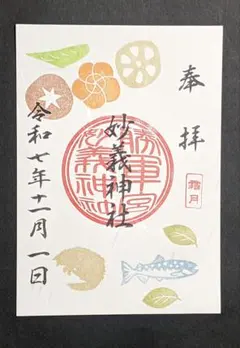 奉拝
霜月
妙義神社
令和七年十一月一日